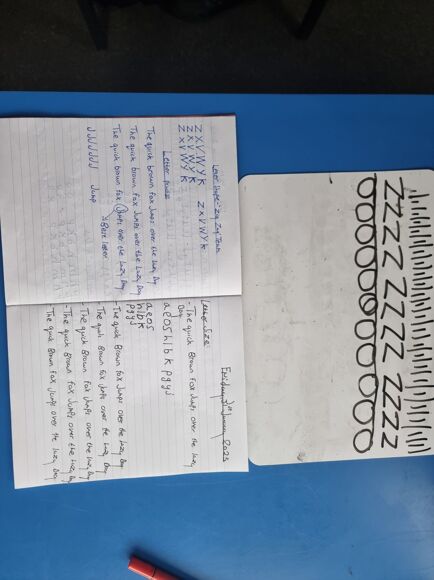 Letter shape:- Zig Zag
Z X V W Y K Z X V W Y K
Z X V W Y K
Z X V W Y K
Letter
The quick brown fox Jumps over the lazy Dog
The quick brown fox Jumps over the lazy Dog
The quick brown fox Jumps over the lazy Dog
Base letter
JJJJJJJ Jump
January 2025
Letter Size
- The quick Brown Fox Jumps over the lazy
Dog
a e o s h l b k p g y j
a e o s
h l b k
p g y j
- The quick Brown fox Jumps over the lazy Dog
- The quick Brown fox Jumps over the lazy Dog
- The quick Brown fox Jumps over the lazy Dog
- The quick Brown fox Jumps over the lazy Dog
- The quick Brown fox Jumps over the lazy Dog
ZZZZ ZZZZ ZZZZ
OOOOOOOOOOOO